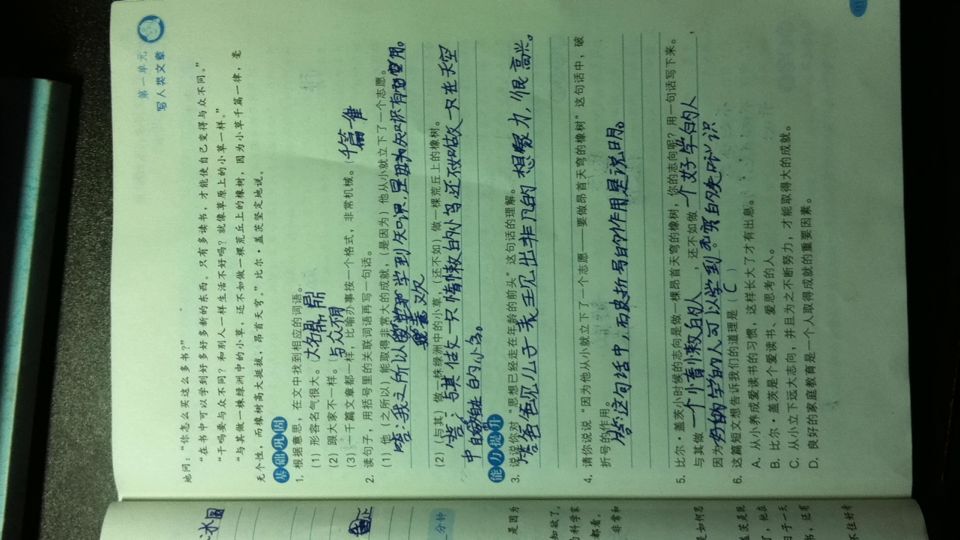 第一单元
写人类文章
地问：“你怎么买这么多书？”
“在书中可以学到好多好多新的东西，只有多读书，才能使自己变得与众不同。”
“干吗要与众不同？和别人一样生活不好吗？就像草原上的小草一样。”
“与其做一株绿洲中的小草，还不如做一棵荒丘上的橡树，因为小草千篇一律，毫
无个性，而橡树高大挺拔，昂首天穹。”比尔·盖茨坚定地说。
基础巩固
1. 根据意思，在文中找到相应的词语。
(1) 形容名气很大。大名鼎鼎
(2) 跟大家不一样。与众不同
(3) 一千篇文章都一样，比喻办事按一个格式，非常机械。千篇一律
2. 读句子，用括号里的关联词语再写一句话。
(1) 他（之所以）能取得非常大的成就，（是因为）他从小就立下了一个志愿。
答：我之所以喜欢学到知识，是因为知识有用。
(2)（与其）做一株绿洲中的小草，（还不如）做一棵荒丘上的橡树。
答：与其做一只懒散的小鸟还不如做一只在天空
中的小鸟。
能力提升
3. 说说你对“思想已经走在年龄的前头”这句话的理解。
答爸爸见儿子表现出非凡的想努力，很高兴。
4. 请你说说“因为他从小就立下了一个志愿——要做昂首天穹的橡树”这句话中，破
折号的作用。
答：这句话中，破折号的作用是说明。
5. 比尔·盖茨小时候的志向是做一棵昂首天穹的橡树，你的志向呢？用一句话写下来。
与其做一个懒散的人，还不如做一个好学的人，
因为好学的人可以学到更多的知识
6. 这篇短文想告诉我们的道理是（C）
A. 从小养成爱读书的习惯，这样长大了才有出息。
B. 比尔·盖茨是个爱读书、爱思考的人。
C. 从小立下远大志向，并且为之不断努力，才能取得大的成就。
D. 良好的家庭教育是一个人取得成就的重要因素。
分钟
是因为